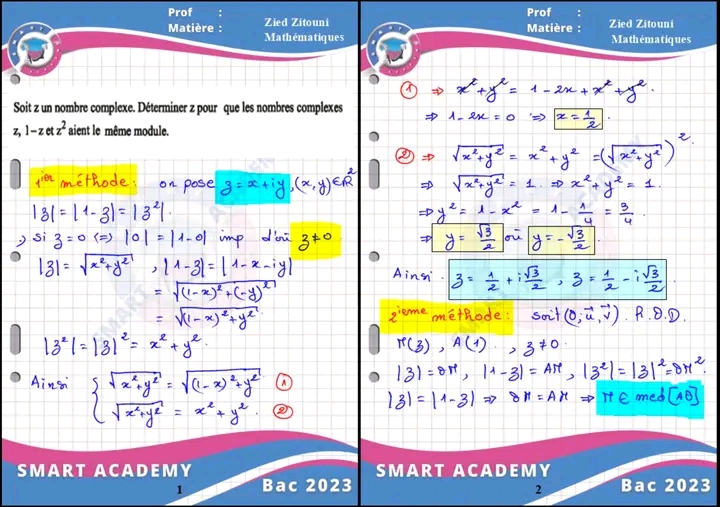 Prof :
Matière :
Zied Zitouni
Mathématiques
Soit z un nombre complexe. Déterminer z pour que les nombres complexes
z, 1−z et z² aient le même module.
1ier méthode: on pose z = x+iy, (x, y) ∈ ℝ²
|z| = |1−z| = |z²|.
si z = 0 (=) |0| = |1−0| imp d'où z ≠ 0
|z| = √(x²+y²) , |1−z| = |1−x−iy|
= √((1−x)²+(−y)²)
= √((1−x)²+y²)
|z²| = |z|² = x²+y².
Ainsi { √(x²+y²) = √((1−x)²+y²) ①
√(x²+y²) = x²+y². ②
SMART ACADEMY
1
Bac 2023
Prof :
Matière :
Zied Zitouni
Mathématiques
① ⇒ x²+y² = 1−2x+x²+y².
⇒ 1−2x = 0 ⇒ x = 1/2.
② ⇒ √(x²+y²) = x²+y² = (√(x²+y²))²
⇒ √(x²+y²) = 1. ⇒ x²+y² = 1.
⇒ y² = 1−x² = 1−1/4 = 3/4
⇒ y = √3/2 où y = −√3/2.
Ainsi. z = 1/2 + i√3/2 , z = 1/2 − i√3/2
2ieme méthode: soit (O, u⃗, v⃗). R.O.D.
M(z) , A(1) , z ≠ 0.
|z| = OM , |1−z| = AM , |z²| = |z|² = OM².
|z| = |1−z| ⇒ OM = AM ⇒ M ∈ med[AO]
SMART ACADEMY
2
Bac 2023